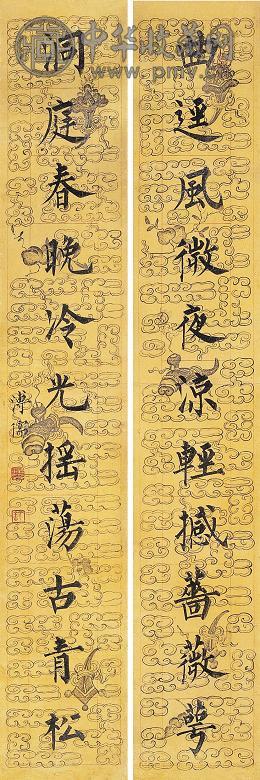 中华收藏网
www.pmv.cn
幽逕風微夜涼輕撼薔薇萼
洞庭春晚冷光搖蕩古青松
溥儒